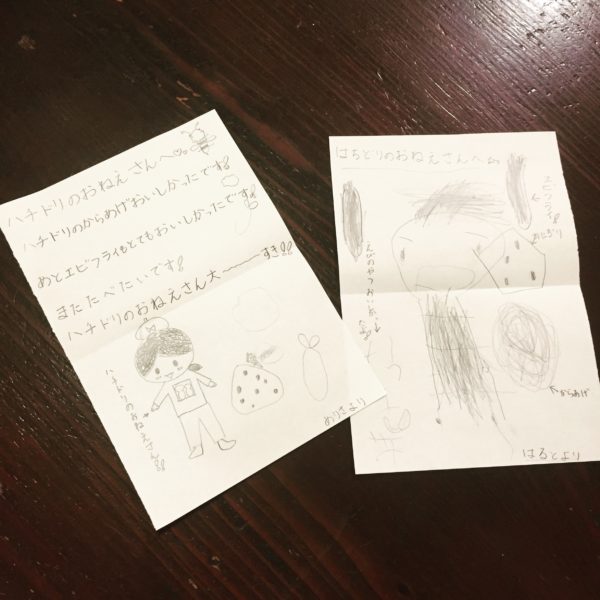 ハチドリのおねえさんへ
ハチドリのからあげおいしかったです!
あとエビフライもとてもおいしかったです
またたべたいです!
ハチドリのおねえさん大〜〜〜すき!!
ハチドリのおねえさん!!
ありさより
はちどりのおねえさんへ
エビフライ
おにぎり
からあげ
はるとより